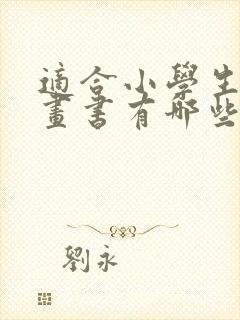 適合小學生
畫書有哪些
劉永